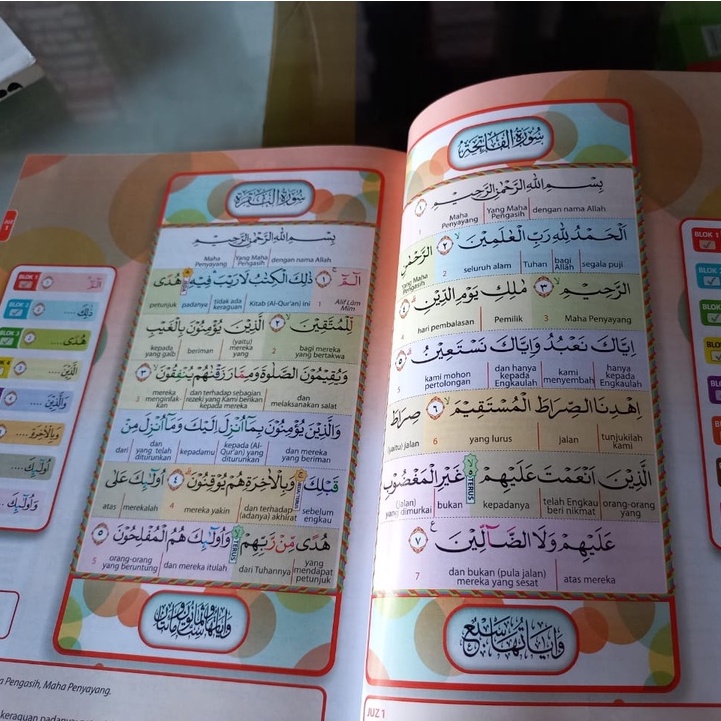 سُورَةُ الْفَاتِحَةِ
بِسْمِ اللّٰهِ الرَّحْمٰنِ الرَّحِيْمِ ۝١
dengan nama Allah | Yang Maha Pengasih | Maha Penyayang 1
اَلْحَمْدُ لِلّٰهِ رَبِّ الْعٰلَمِيْنَ ۝٢ الرَّحْمٰنِ
segala puji | bagi Allah | Tuhan | seluruh alam 2 Yang Maha Pengasih
الرَّحِيْمِ ۝٣ مٰلِكِ يَوْمِ الدِّيْنِ ۝٤
Maha Penyayang 3 Pemilik | hari pembalasan 4
اِيَّاكَ نَعْبُدُ وَاِيَّاكَ نَسْتَعِيْنُ ۝٥
hanya kepada Engkaulah | kami menyembah | dan hanya kepada Engkaulah | kami mohon pertolongan 5
اِهْدِنَا الصِّرَاطَ الْمُسْتَقِيْمَ ۝٦ صِرَاطَ
tunjukilah kami | jalan | yang lurus 6 (yaitu) jalan
الَّذِيْنَ اَنْعَمْتَ عَلَيْهِمْ غَيْرِ الْمَغْضُوْبِ
TERUS
orang-orang yang | telah Engkau beri nikmat | kepadanya | bukan | (jalan) yang dimurkai
عَلَيْهِمْ وَلَا الضَّاۤلِّيْنَ ۝٧
atas mereka | dan bukan (pula jalan) mereka yang sesat 7
وَاٰيَاتُهَا سَبْعٌ
JUZ 1
BLOK 1
BLOK 2
سُورَةُ الْبَقَرَةِ
بِسْمِ اللّٰهِ الرَّحْمٰنِ الرَّحِيْمِ
dengan nama Allah | Yang Maha Pengasih | Maha Penyayang
الۤمّۤ ۝١ ذٰلِكَ الْكِتٰبُ لَا رَيْبَ فِيْهِ هُدًى
Alif Lām Mīm 1 Kitab (Al-Qur'an) ini | tidak ada keraguan | padanya | petunjuk
لِّلْمُتَّقِيْنَ ۝٢ الَّذِيْنَ يُؤْمِنُوْنَ بِالْغَيْبِ
bagi mereka yang bertakwa 2 (yaitu) mereka yang | beriman | kepada yang gaib
وَيُقِيْمُوْنَ الصَّلٰوةَ وَمِمَّا رَزَقْنٰهُمْ يُنْفِقُوْنَ ۝٣
dan melaksanakan salat | dan terhadap sebagian rezeki yang Kami berikan kepada mereka | mereka menginfakkan 3
وَالَّذِيْنَ يُؤْمِنُوْنَ بِمَآ اُنْزِلَ اِلَيْكَ وَمَآ اُنْزِلَ مِنْ
dan mereka yang beriman | kepada (Al-Qur'an) yang diturunkan | kepadamu | dan yang telah diturunkan | dari
قَبْلِكَ وَبِالْاٰخِرَةِ هُمْ يُوْقِنُوْنَ ۝٤ اُولٰۤىِٕكَ عَلٰى
sebelum engkau | dan terhadap (adanya) akhirat | mereka yakin 4 merekalah | atas
هُدًى مِّنْ رَّبِّهِمْ وَاُولٰۤىِٕكَ هُمُ الْمُفْلِحُوْنَ ۝٥
TERUS
yang mendapat petunjuk | dari Tuhannya | dan mereka itulah | orang-orang yang beruntung 5
BLOK 1
الۤمّۤ
BLOK 2
ذٰلِكَ ....
BLOK 3
هُدًى ....
الَّذِيْنَ ....
وَالَّذِيْنَ ....
وَبِالْاٰخِرَةِ ....
اُولٰۤىِٕكَ ....
وَاُولٰۤىِٕكَ
Pengasih, Maha Penyayang.